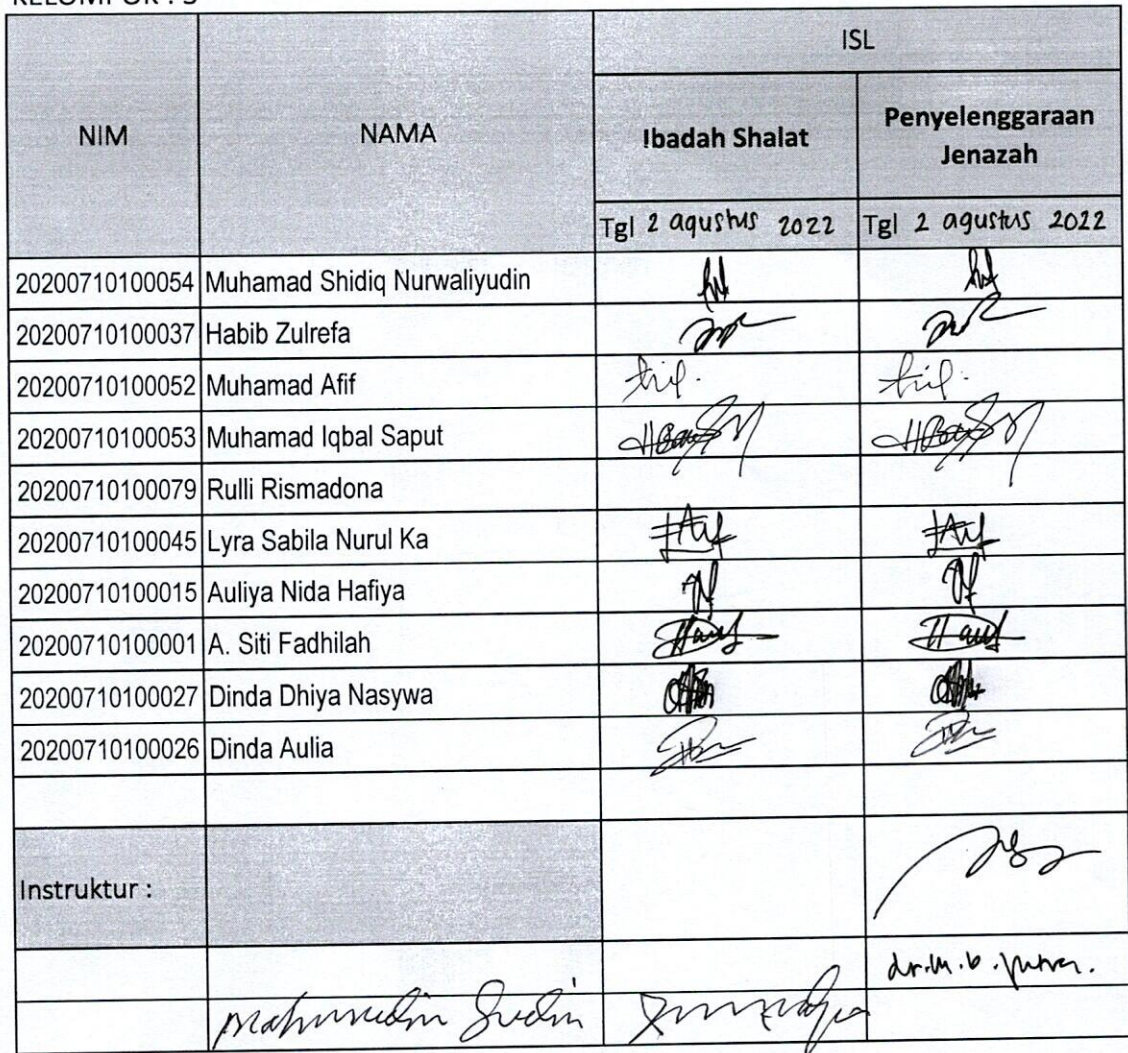 ISL
NIM
NAMA
Ibadah Shalat
Penyelenggaraan
Jenazah
Tgl 2 agustus 2022
Tgl 2 agustus 2022
20200710100054 Muhamad Shidiq Nurwaliyudin
20200710100037 Habib Zulrefa
20200710100052 Muhamad Afif
20200710100053 Muhamad Iqbal Saput
20200710100079 Rulli Rismadona
20200710100045 Lyra Sabila Nurul Ka
20200710100015 Auliya Nida Hafiya
20200710100001 A. Siti Fadhilah
20200710100027 Dinda Dhiya Nasywa
20200710100026 Dinda Aulia
Instruktur :
dr. M. B. Putra.